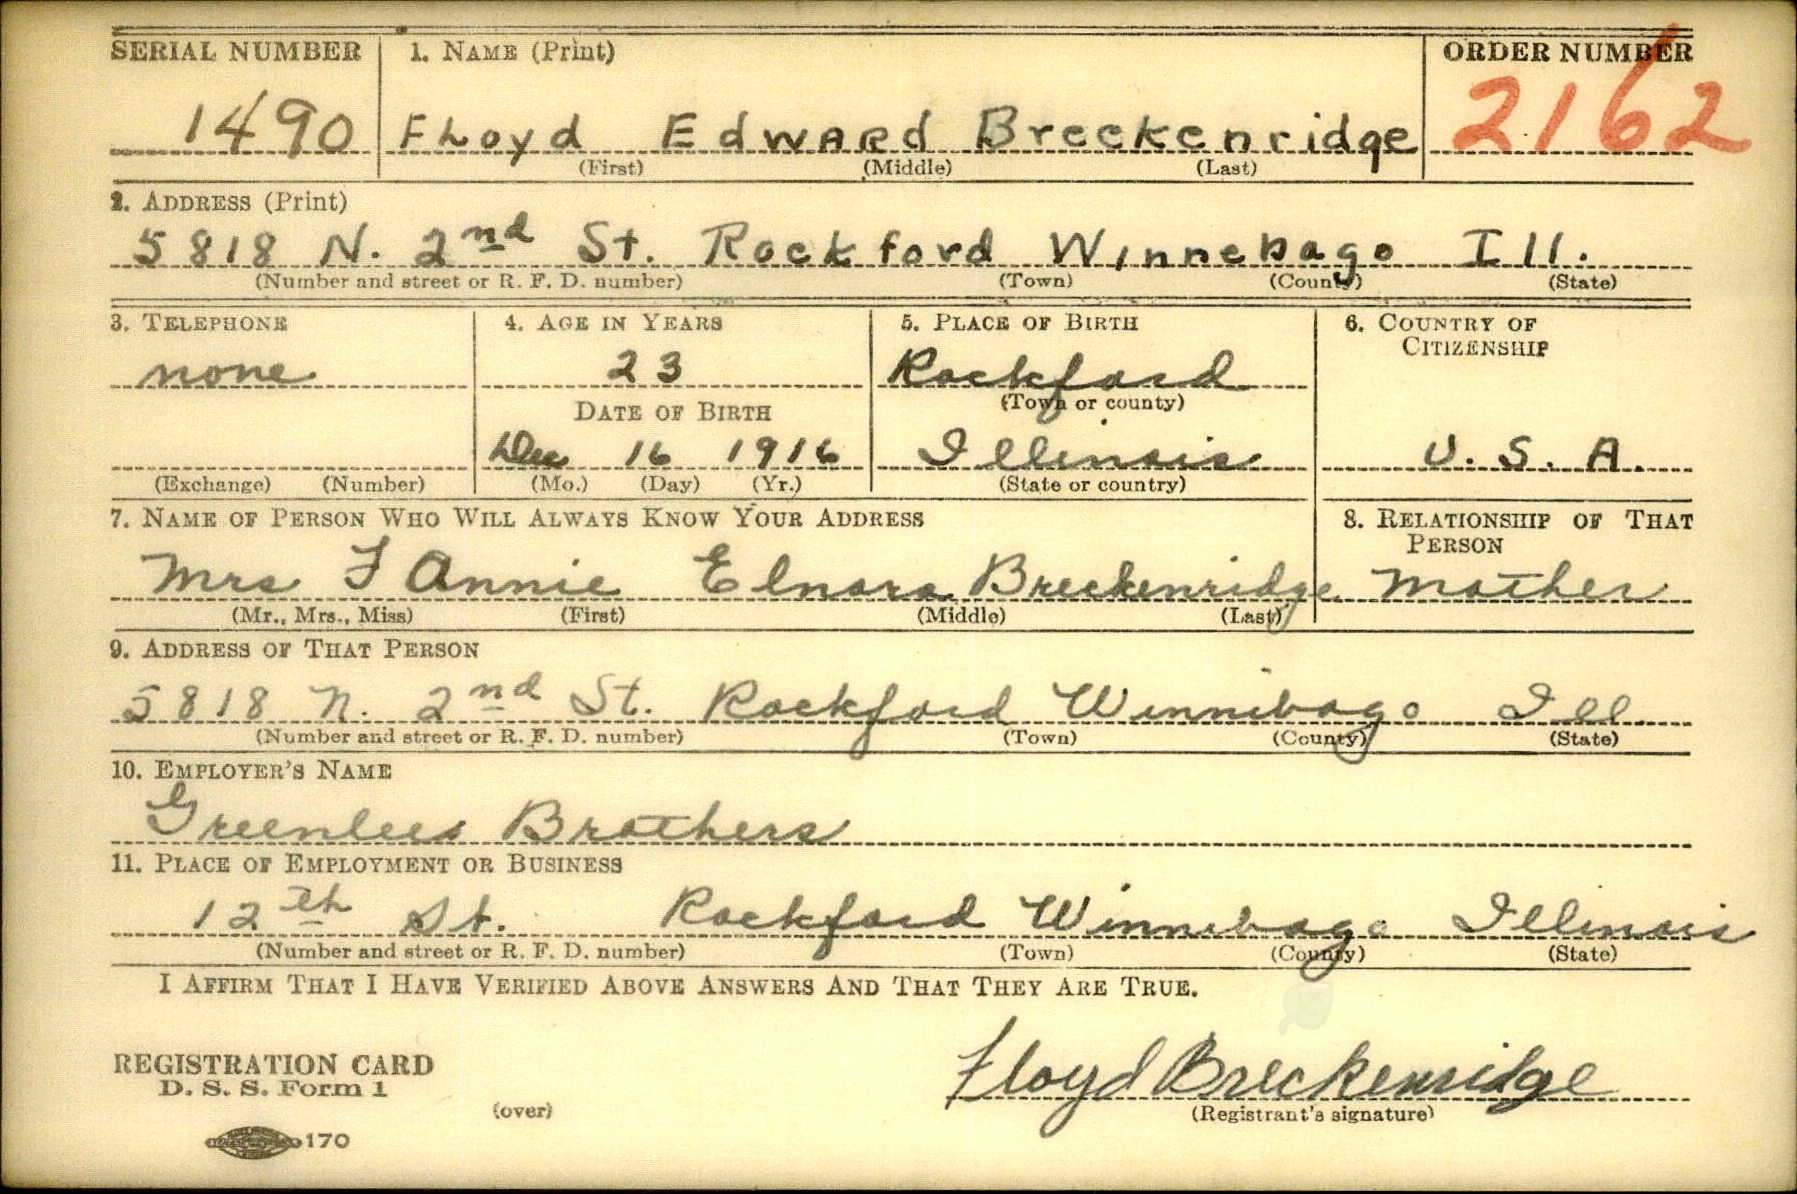 SERIAL NUMBER 1. NAME (Print) ORDER NUMBER
1490 FLoyd EdWARd Breckenridge 2162
(First) (Middle) (Last)
2. ADDRESS (Print)
5818 N. 2nd St. Rockford Winnebago Ill.
(Number and street or R. F. D. number) (Town) (County) (State)
3. TELEPHONE 4. AGE IN YEARS 5. PLACE OF BIRTH 6. COUNTRY OF
CITIZENSHIP
none 23 Rockford
DATE OF BIRTH (Town or county)
Dec 16 1916 Illinois U. S. A.
(Exchange) (Number) (Mo.) (Day) (Yr.) (State or country)
7. NAME OF PERSON WHO WILL ALWAYS KNOW YOUR ADDRESS 8. RELATIONSHIP OF THAT
PERSON
Mrs F Annie Elnora Breckenridge Mother
(Mr., Mrs., Miss) (First) (Middle) (Last)
9. ADDRESS OF THAT PERSON
5818 N. 2nd St. Rockford Winnibago Ill
(Number and street or R. F. D. number) (Town) (County) (State)
10. EMPLOYER'S NAME
Greenlees Brothers
11. PLACE OF EMPLOYMENT OR BUSINESS
12th St. Rockford Winnibago Illinois
(Number and street or R. F. D. number) (Town) (County) (State)
I AFFIRM THAT I HAVE VERIFIED ABOVE ANSWERS AND THAT THEY ARE TRUE.
REGISTRATION CARD
D. S. S. Form 1 Floyd Breckenridge
(over) (Registrant's signature)
170